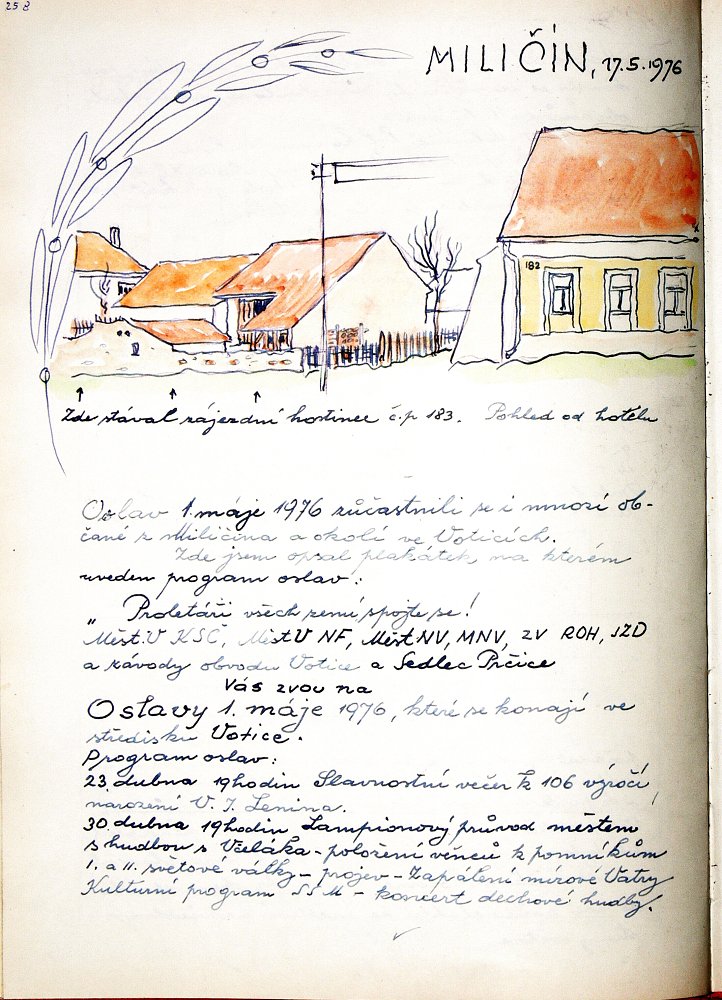 258
MILIČÍN, 17.5.1976
182
Zde stával zájezdní hostinec č.p 183. Pohled od hotelu
Oslav 1. máje 1976 zúčastnili se i mnozí ob-
čané z Miličína a okolí ve Voticích.
Zde jsem opsal plakátek, na kterém
uveden program oslav:
„ Proletáři všech zemí spojte se!
Měst.V KSČ, Měst.V NF, Měst NV, MNV, ZV ROH, JZD
a závody obvodu Votice a Sedlec Prčice
Vás zvou na
Oslavy 1. máje 1976, které se konají ve
středisku Votice.
Program oslav:
23. dubna 19 hodin Slavnostní večer k 106 výročí
narození V. I. Lenina.
30. dubna 19 hodin Lampionový průvod městem
s hudbou s - položení věnců k pomníkům
I. a II. světové války - projev - Zapálení mírové Vatry
Kulturní program SSM - koncert dechové hudby.